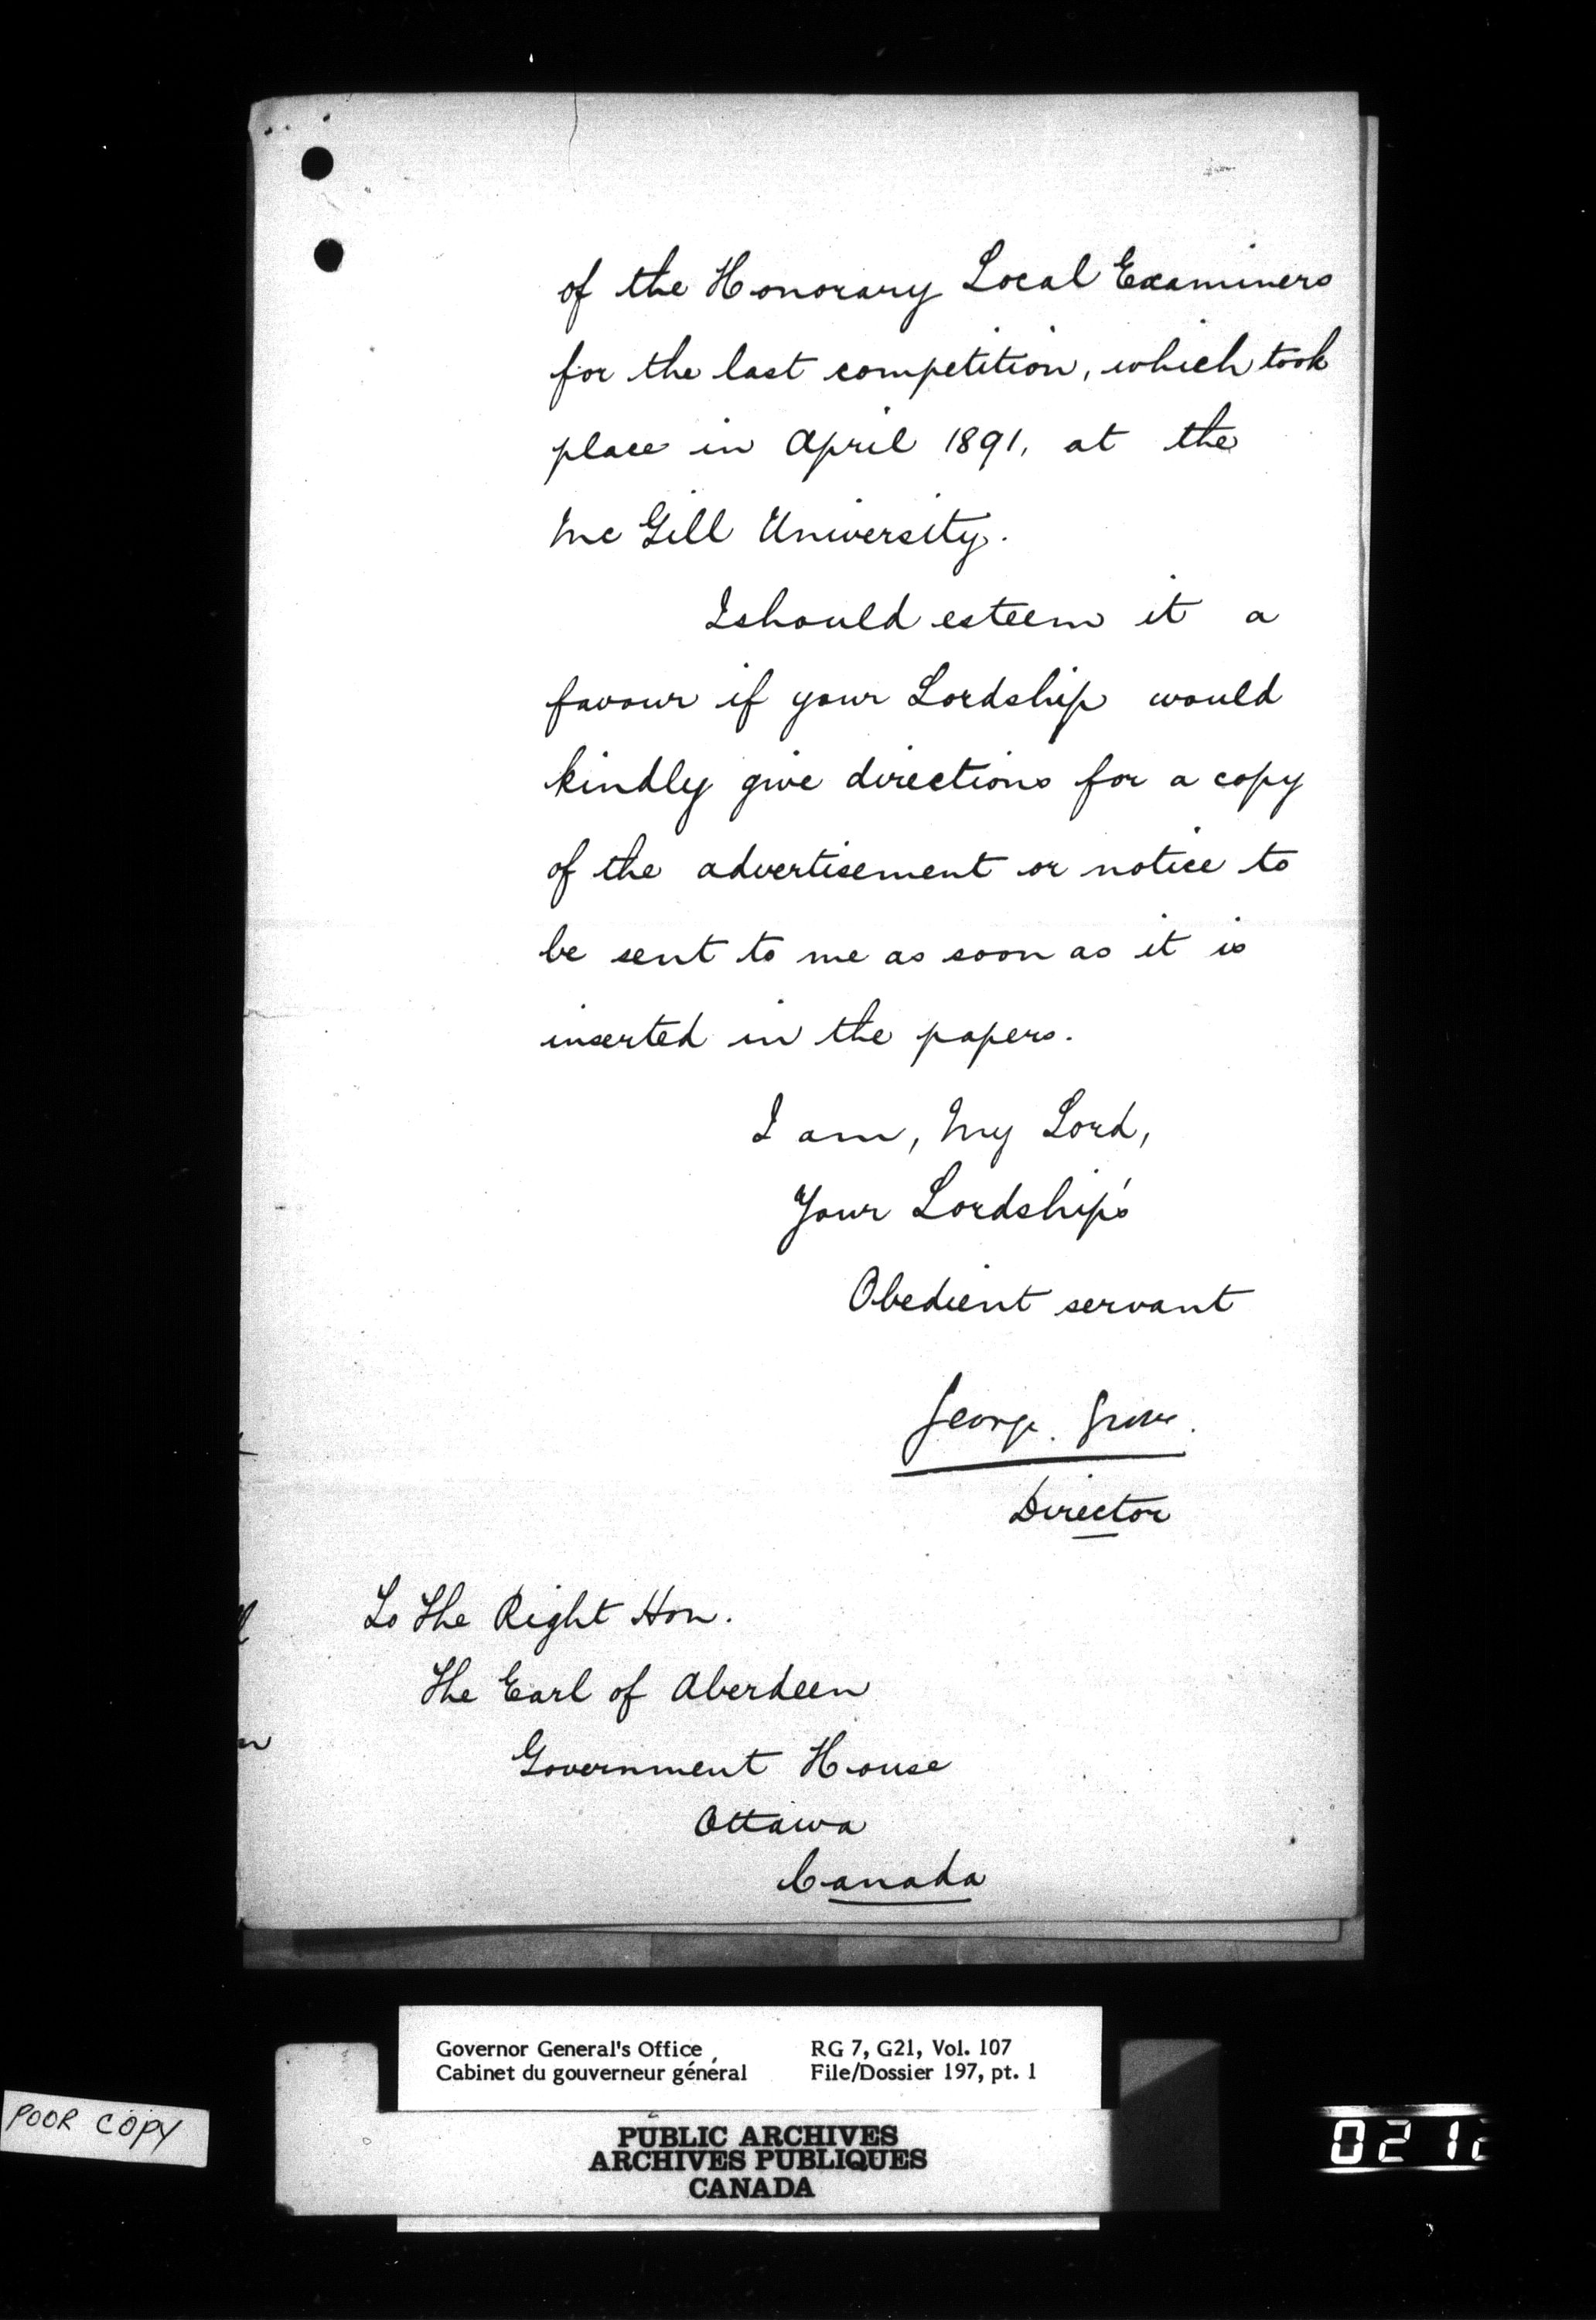 of the Honorary Local Examiners
for the last competition, which took
place in April 1891, at the
McGill University.
I should esteem it a
favour if your Lordship would
kindly give directions for a copy
of the advertisement or notice to
be sent to me as soon as it is
inserted in the papers.
I am, My Lord,
Your Lordship's
Obedient servant
George. Grove.
Director
To The Right Hon.
The Earl of Aberdeen
Government House
Ottawa
Canada
Governor General's Office RG 7, G21, Vol. 107
Cabinet du gouverneur général File/Dossier 197, pt. 1
POOR COPY
PUBLIC ARCHIVES
ARCHIVES PUBLIQUES
CANADA